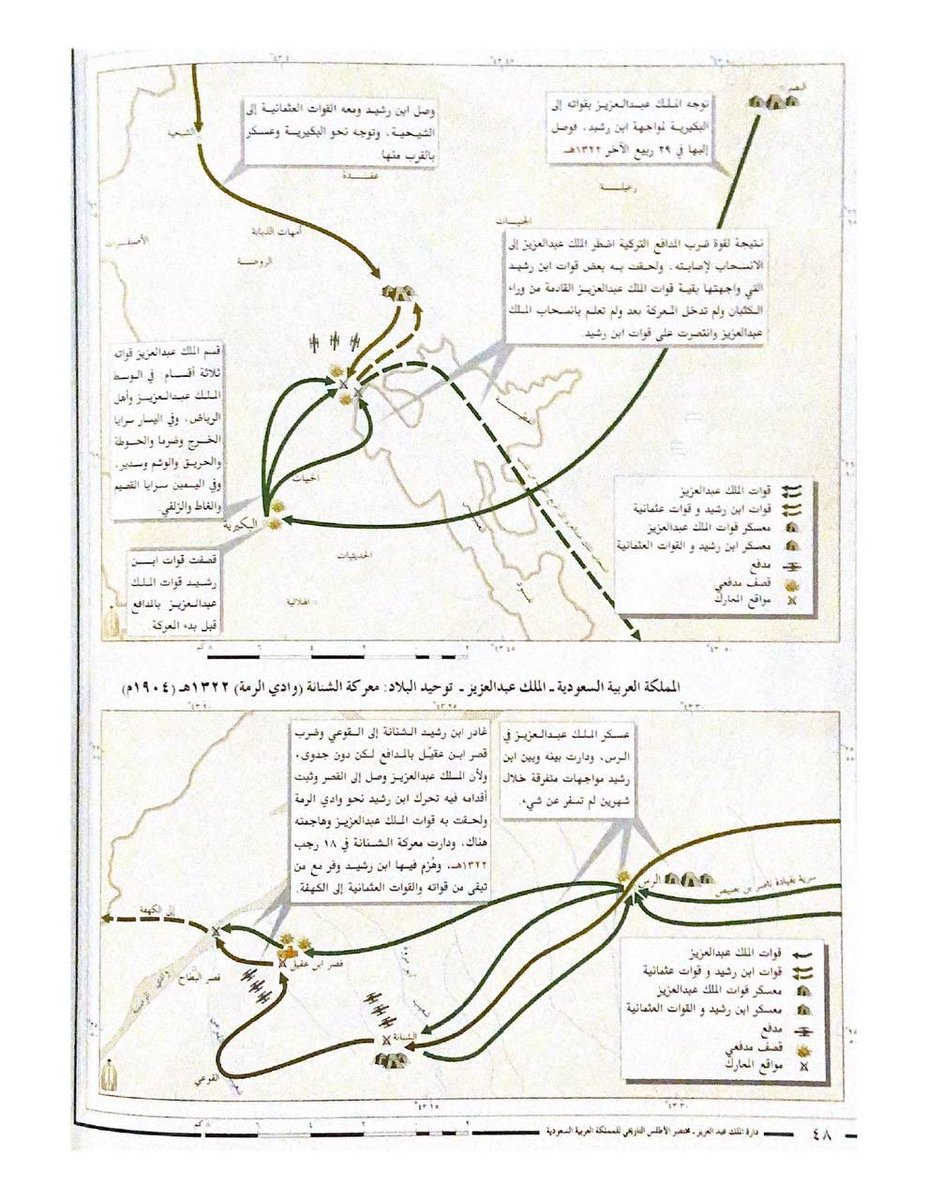 ٤٣,٤٥
وصل ابن رشيد ومعه القوات العثمانية إلى
الشيحية، وتوجه نحو البكيرية وعسكر
بالقرب منها.
توجه الملك عبدالعزيز بقواته إلى
البكيرية لمواجهة ابن رشيد، فوصل
إليها في ٢٩ ربيع الآخر ١٣٢٢هـ.
الشيحية
عقدة
الخبيبات
أمهات الذيابة
الروضة
نتيجة لقوة ضرب المدافع التركية اضطر الملك عبدالعزيز إلى
الانسحاب لإصابته، ولحقت به بعض قوات ابن رشيد
التي واجهتها بقية قوات الملك عبدالعزيز القادمة من وراء
الكثبان ولم تدخل المعركة بعد ولم تعلم بانسحاب الملك
عبدالعزيز وانتصرت على قوات ابن رشيد.
قسم الملك عبدالعزيز قواته
ثلاثة أقسام: في الوسط
الملك عبدالعزيز وأهل
الرياض، وفي اليسار سرايا
الخرج وضرما والحوطة
والحريق والوشم وسدير،
وفي اليمين سرايا القصيم
والغاط والزلفي.
البكيرية
الهلالية
قصفت قوات ابن
رشيد قوات الملك
عبدالعزيز بالمدافع
قبل بدء المعركة.
قوات الملك عبدالعزيز
قوات ابن رشيد و قوات عثمانية
معسكر قوات الملك عبدالعزيز
معسكر ابن رشيد و القوات العثمانية
مدفع
قصف مدفعي
مواقع المعارك
٢ ٤ ٦ ٨ كم
٤٣,٤٥ ٤٣,٥٠
المملكة العربية السعودية ـ الملك عبدالعزيز ـ توحيد البلاد: معركة الشنانة (وادي الرمة) ١٣٢٢هـ (١٩٠٤م)
٤٣,٢٠ ٤٣,٢٥ ٤٣,٣٠
عسكر الملك عبدالعزيز في
الرس، ودارت بينه وبين ابن
رشيد مواجهات متفرقة خلال
شهرين لم تسفر عن شيء.
غادر ابن رشيد الشنانة إلى القوعي وضرب
قصر ابن عقيّل بالمدافع لكن دون جدوى،
ولأن الملك عبدالعزيز وصل إلى القصر وثبت
أقدامه فيه تحرك ابن رشيد نحو وادي الرمة
ولحقت به قوات الملك عبدالعزيز وهاجمته
هناك، ودارت معركة الشنانة في ١٨ رجب
١٣٢٢هـ، وهُزم فيها ابن رشيد وفر مع من
تبقى من قواته والقوات العثمانية إلى الكهفة.
الرس
إلى الكهفة
قصر ابن عقيل
الشنانة
القوعي
قوات الملك عبدالعزيز
قوات ابن رشيد و قوات عثمانية
معسكر قوات الملك عبدالعزيز
معسكر ابن رشيد و القوات العثمانية
مدفع
قصف مدفعي
مواقع المعارك
٢ ٤ ٦ ٨ كم
٤٨ دارة الملك عبد العزيز ـ مختصر الأطلس التاريخي للمملكة العربية السعودية